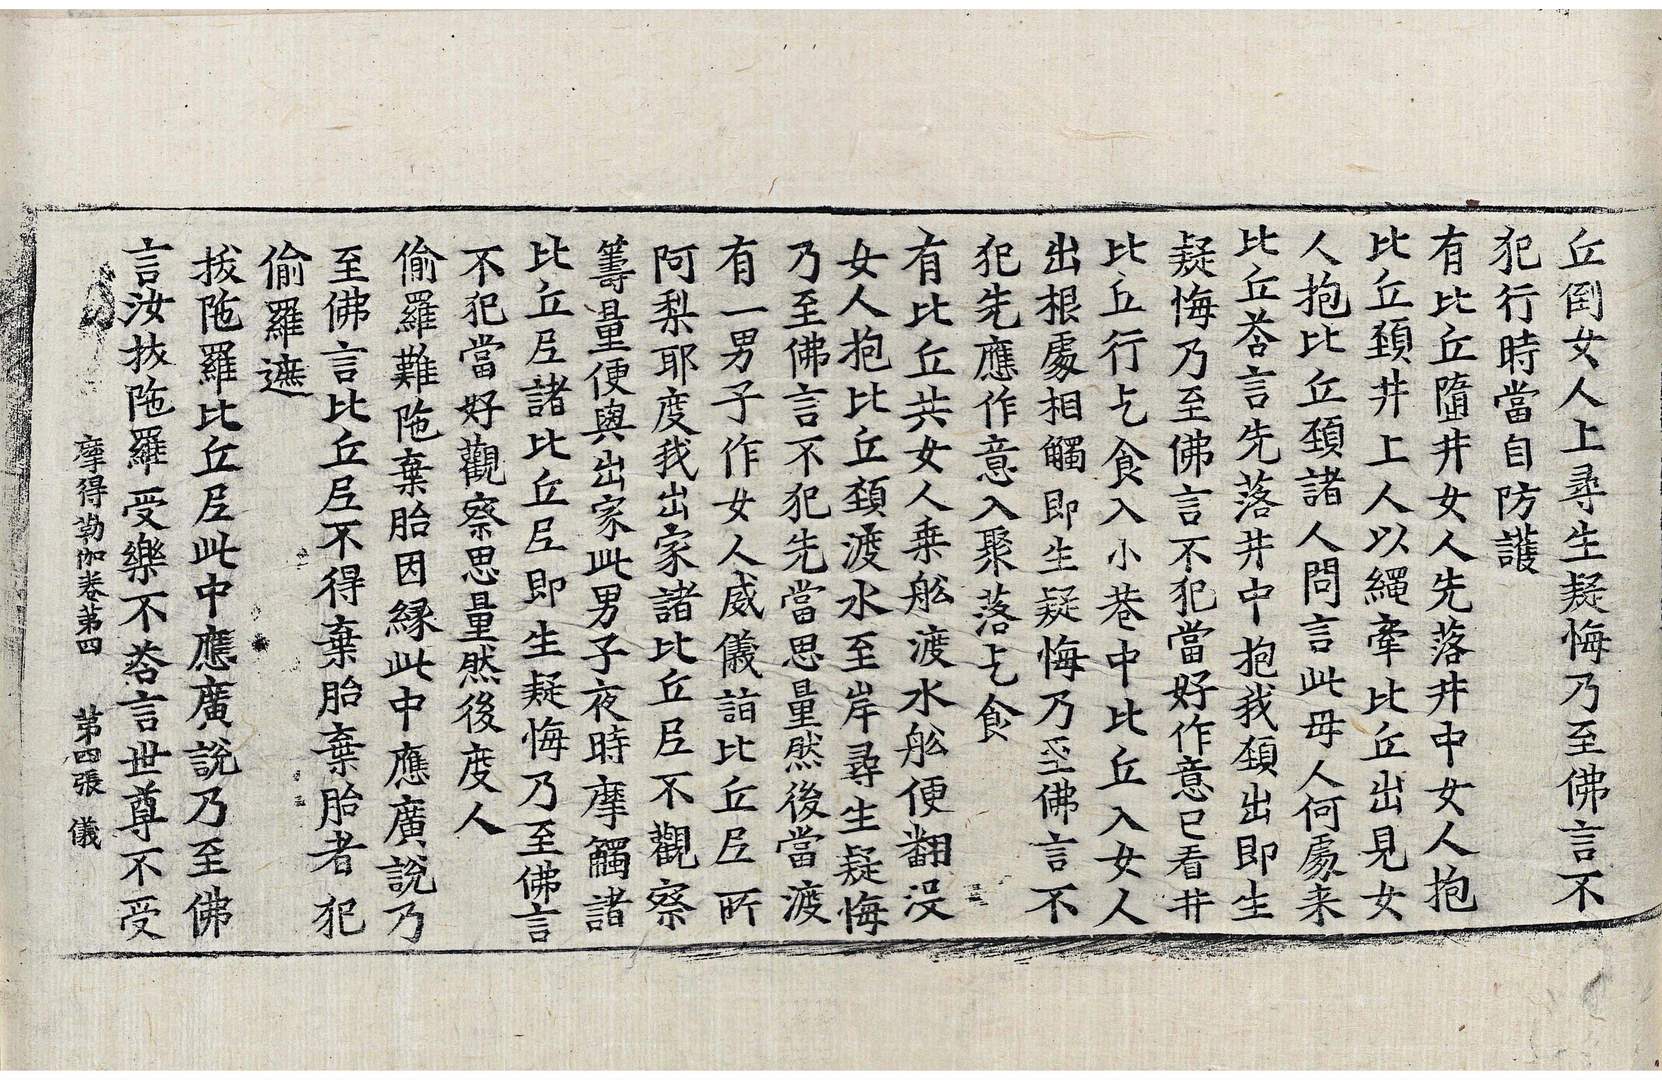 丘倒女人上尋生疑悔乃至佛言不
犯行時當自防護
有比丘隨井女人先落井中女人抱
比丘頚井上人以繩牽比丘出見女
人抱比丘頚諸人問言此母人何處来
比丘荅言先落井中抱我頚出即生
疑悔乃至佛言不犯當好作意已看井
比丘行乞食入小巷中比丘入女人
出根處相觸即生疑悔乃至佛言不
犯先應作意入聚落乞食
有比丘共女人乗舩渡水舩便翻没
女人抱比丘頚渡水至岸尋生疑悔
乃至佛言不犯先當思量然後當渡
有一男子作女人威儀詣比丘尼所
阿梨耶度我出家諸比丘尼不觀察
籌量便與出家此男子夜時摩觸諸
比丘尼諸比丘尼即生疑悔乃至佛言
不犯當好觀察思量然後度人
偷羅難陁棄胎因縁此中應廣說乃
至佛言比丘尼不得棄胎棄胎者犯
偷羅遮
拔陁羅比丘尼此中應廣說乃至佛
言汝拔陁羅受樂不荅言世尊不受
摩得勒伽卷第四 第四張 儀